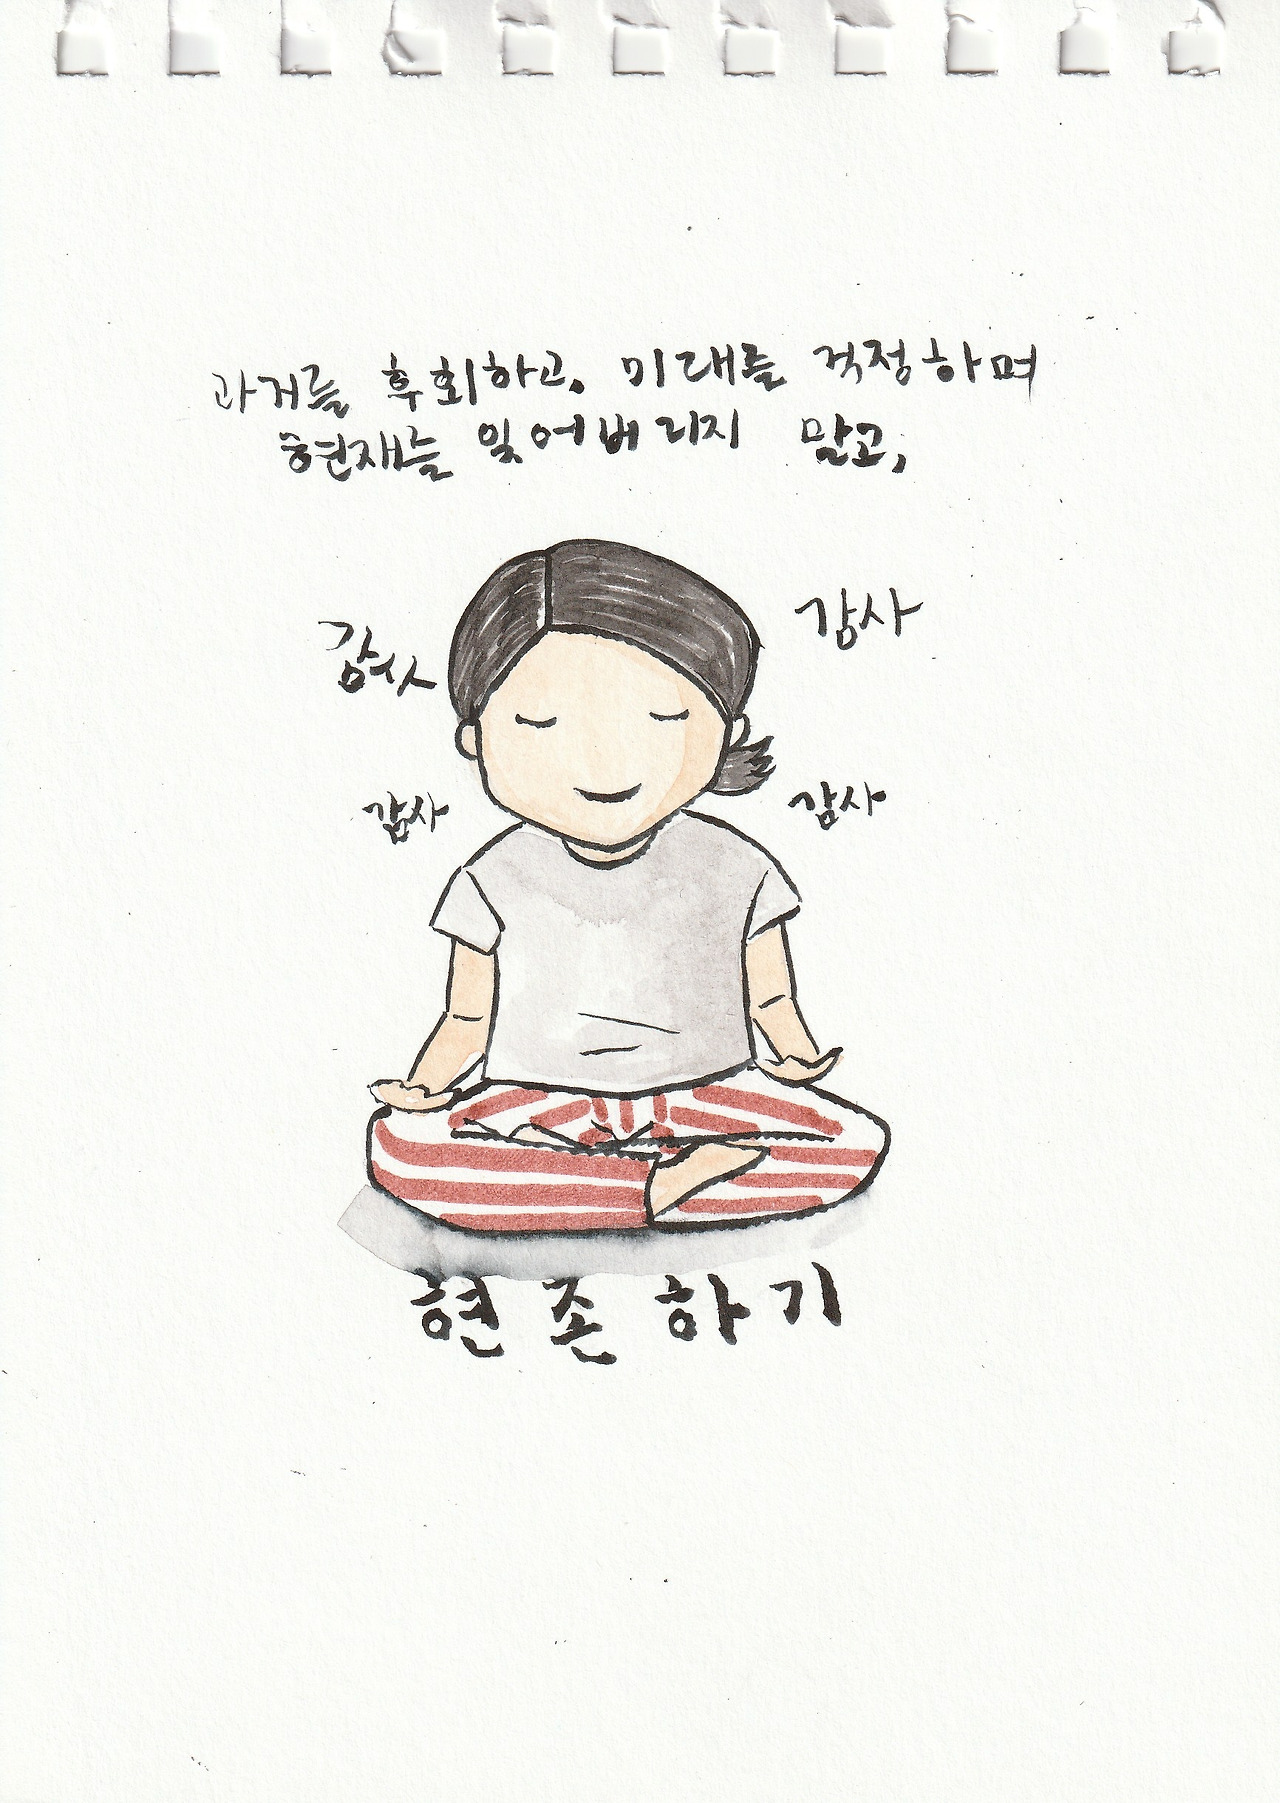 과거를 후회하고, 미래를 걱정하며
현재를 잊어버리지 말고,
감사
감사
감사
감사
현존하기